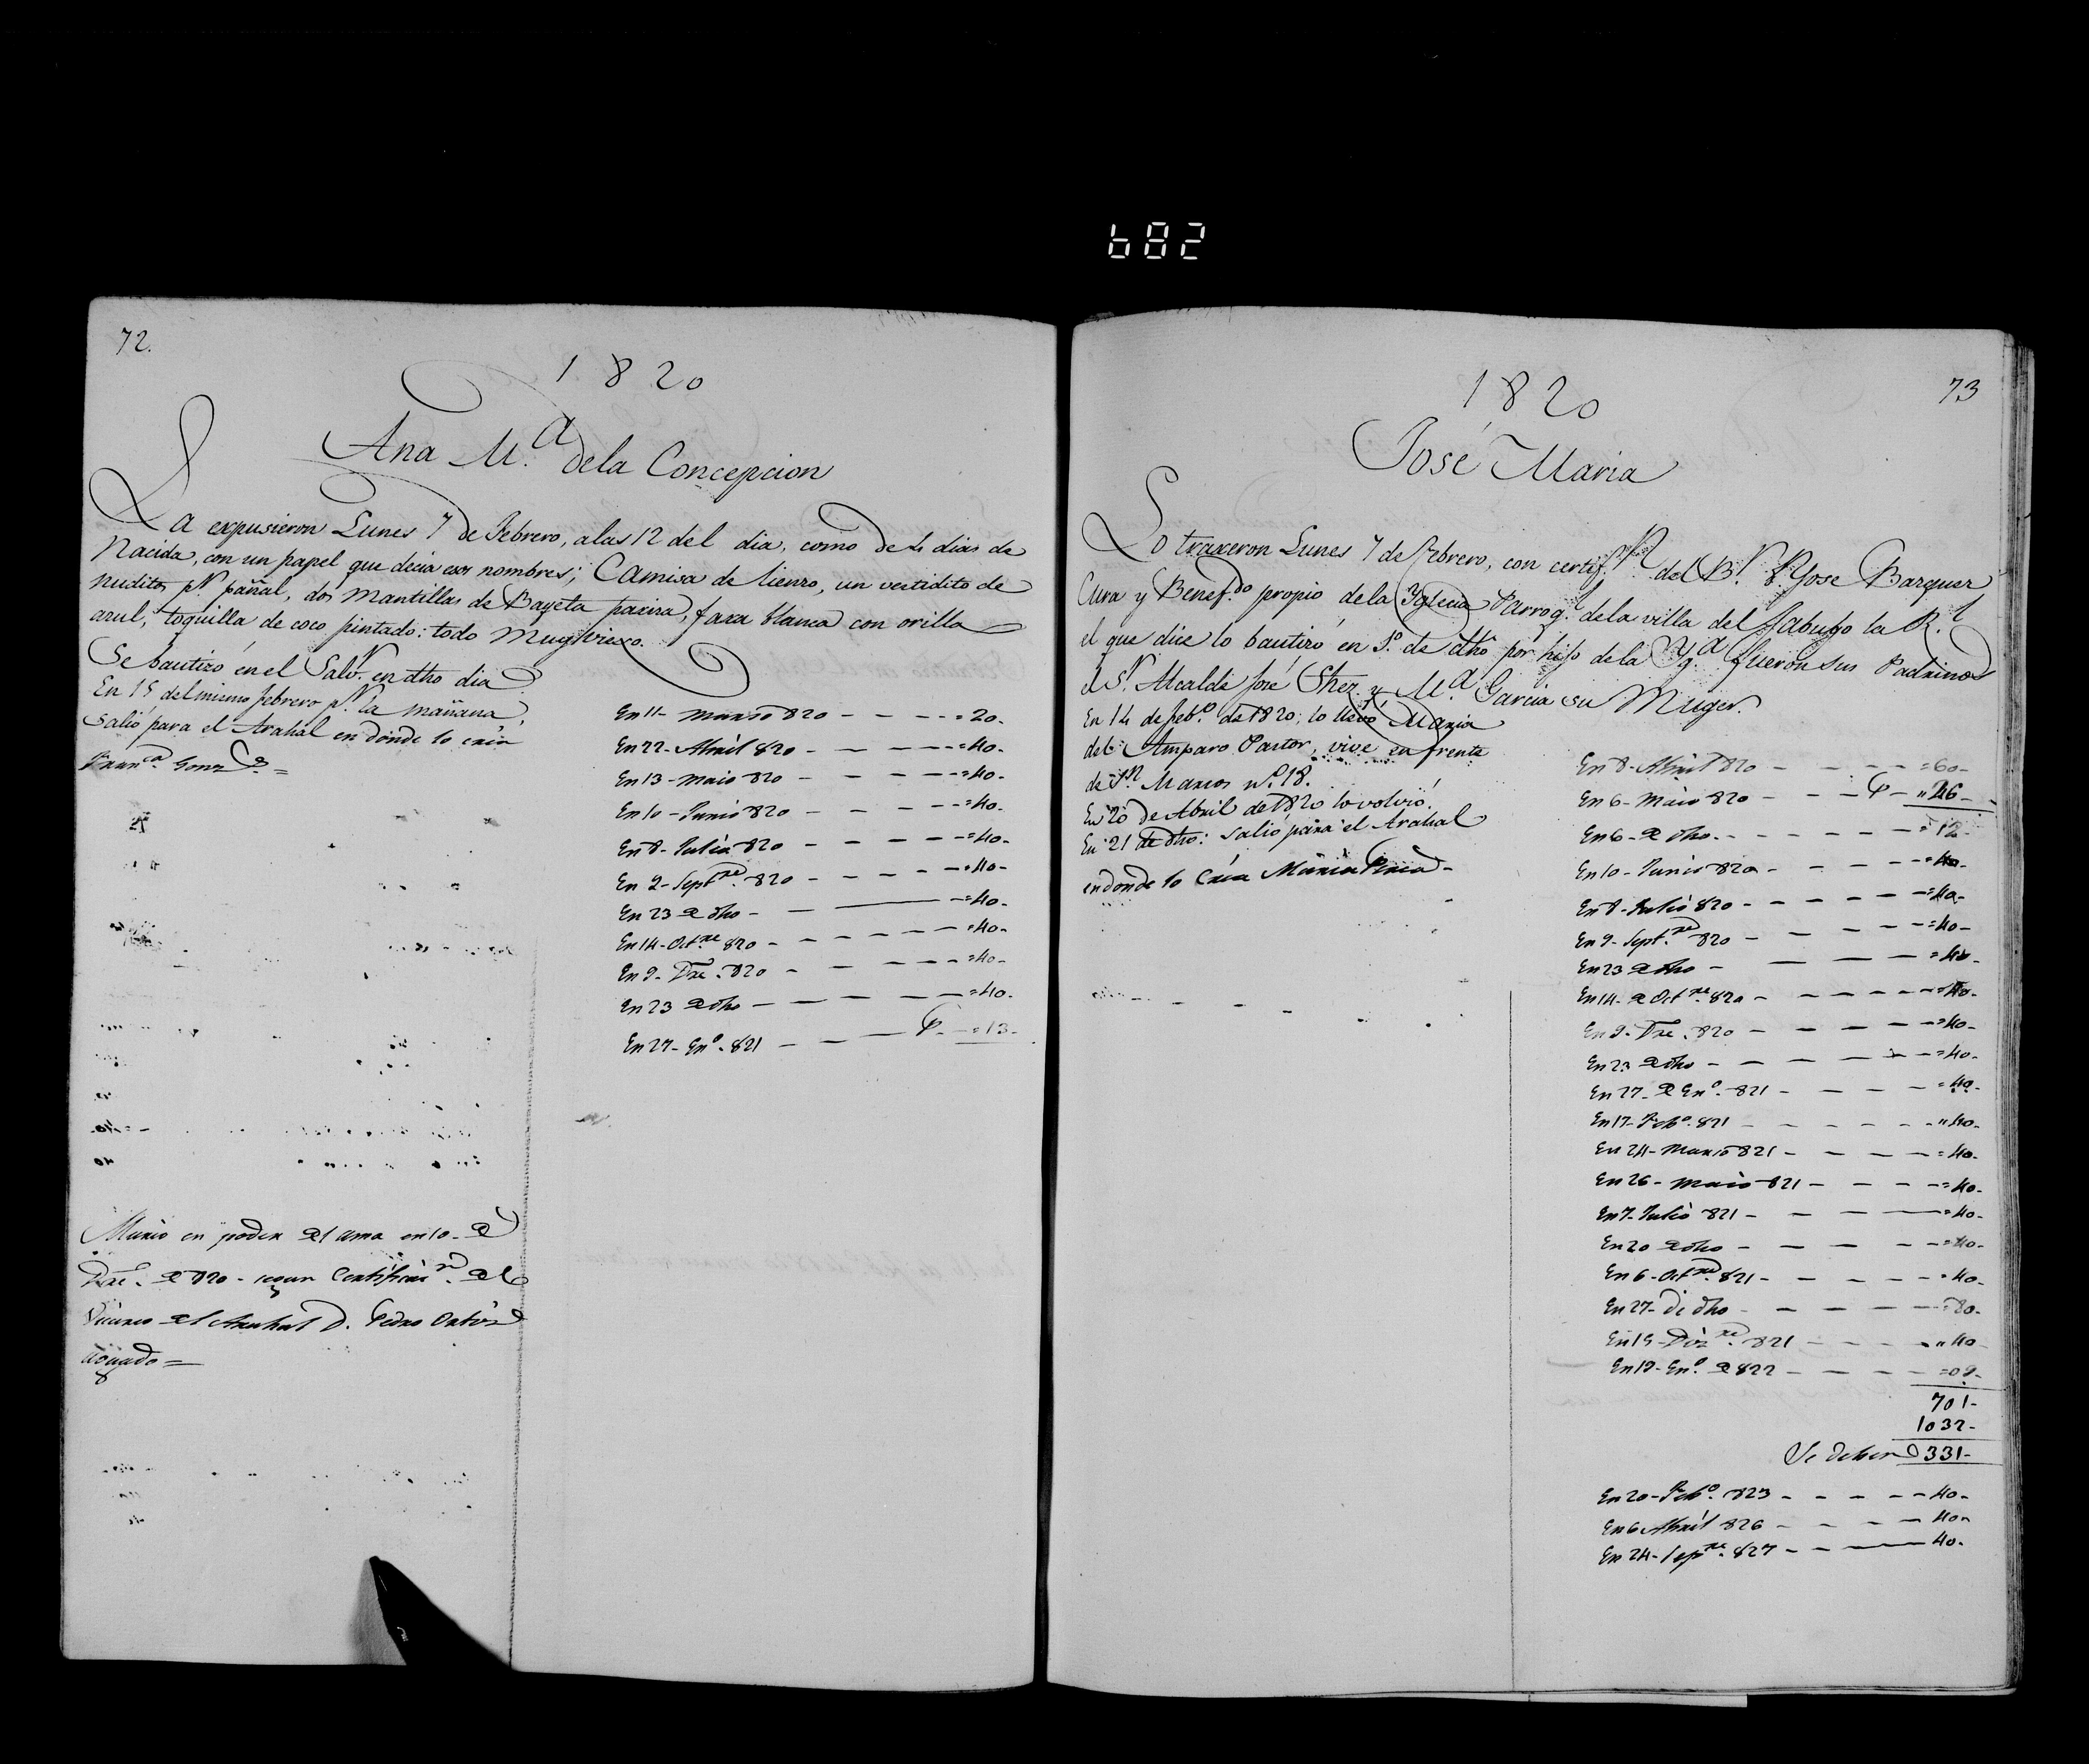 682
72.
1820
Ana M.a dela Concepcion
La expusieron Lunes 7 de Febrero, alas 12 del dia, como de 4 dias de
Nacida, con un papel que decia esos nombres; Camisa de lienzo, un vestidito de
nuditos pr. pañal, dos Mantillas de Bayeta paxiza, faxa blanca con orilla
azul, toquilla de coco pintado: todo Muy viexo.
Se bautizó en el Salvr. en dho dia
En 15 del mismo febrero pr. la mañana,
salió para el Arahal en donde lo cria
Franca. Gonz
En 11- Marzo 820 - - - - = 20.
En 22- Abril 820 - - - - = 40.
En 13- Maio 820 - - - - = 40.
En 10- Junio 820 - - - - = 40.
En 8- Julio 820 - - - - = 40.
En 2- Septre. 820 - - - - = 40-
En 23 de dho - - - = 40.
En 14- Octre. 820 - - - - = 40-
En 9- Dre. 820 - - - - = 40-
En 23 de dho - - - - = 40.
En 27- Eno. 821 - - - P. - = 13-
Murio en poder del ama en 10 de
Dre. de 820- segun Certificn. del
Vicario del Arahal D. Pedro
aguado =
73
1820
José Maria
Lo traxeron Lunes 7 de Febrero, con certifn. del Br. Dn. Jose Barquer
Cura y Benefdo. propio de la Yglecia Parroql. de la villa del Jabugo la Rl.
el que dice lo bautizó en 1o. de dho por hijo de la Yga. fueron sus Padrinos
el Sr. Alcalde José Shez. y Ma. Garcia su Muger.
En 14 de febo. de 1820, lo llevó Maria
del Amparo Pastor, vive en frente
de Sn. Marcos no. 18.
En 20 de Abril de 1820 lo volvió.
En 21 de dho: salió para el Arahal
en donde lo Cria Maria
En 8- Abril 820 - - - - = 60-
En 6- Maio 820 - - - P - " 26-
En 6- de dho. - - - - - = 12-
En 10- Junio 820 - - - - = 40-
En 8- Julio 820 - - - - = 40-
En 9- Septre. 820 - - - - = 40-
En 23 de dho - - - - = 40-
En 14- de Octre. 820 - - - - = 40-
En 9- Dre. 820 - - - - = 40-
En 23 de dho - - - - = 40-
En 27- de Eno. 821 - - - = 40-
En 17- Febo. 821 - - - - " 40-
En 24- Marzo 821 - - - - = 40-
En 26- Maio 821 - - - - = 40-
En 7- Julio 821 - - - = 40-
En 20 de dho - - - - = 40-
En 6- Octre. 821 - - - - = 40-
En 27- de dho - - - - = 80-
En 15- Dizre. 821 - - - " 40-
En 19- Eno. de 822 - - - - = 09-
701-
1032-
Se deben 331-
En 20- Febo. 823 - - - - 40-
En 6 Abril 826 - - - - 40-
En 24- Sepre. 827 - - - 40-